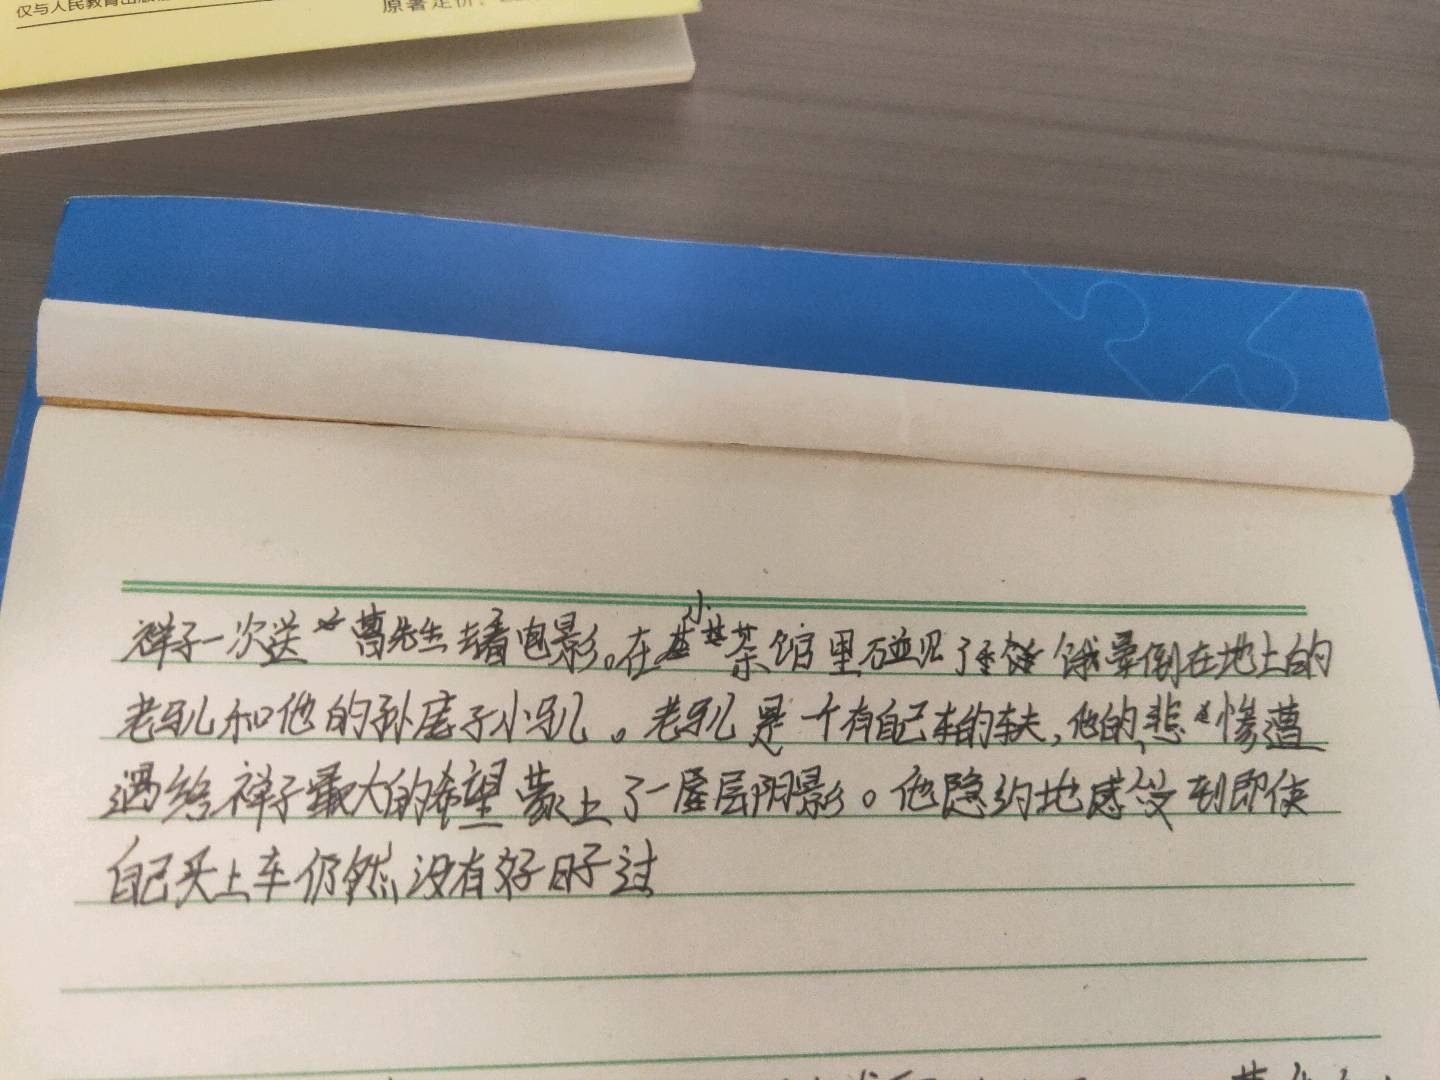 仅与人民教育出版
原著定价：
祥子一次送曹先生去看电影。在小茶馆里碰见了饿晕倒在地上的
老马儿和他的孙子小马儿。老马儿是一个有自己车的车夫，他的悲惨遭
遇给祥子最大的希望蒙上了一层阴影。他隐约地感受到即使
自己买上车仍然没有好日子过